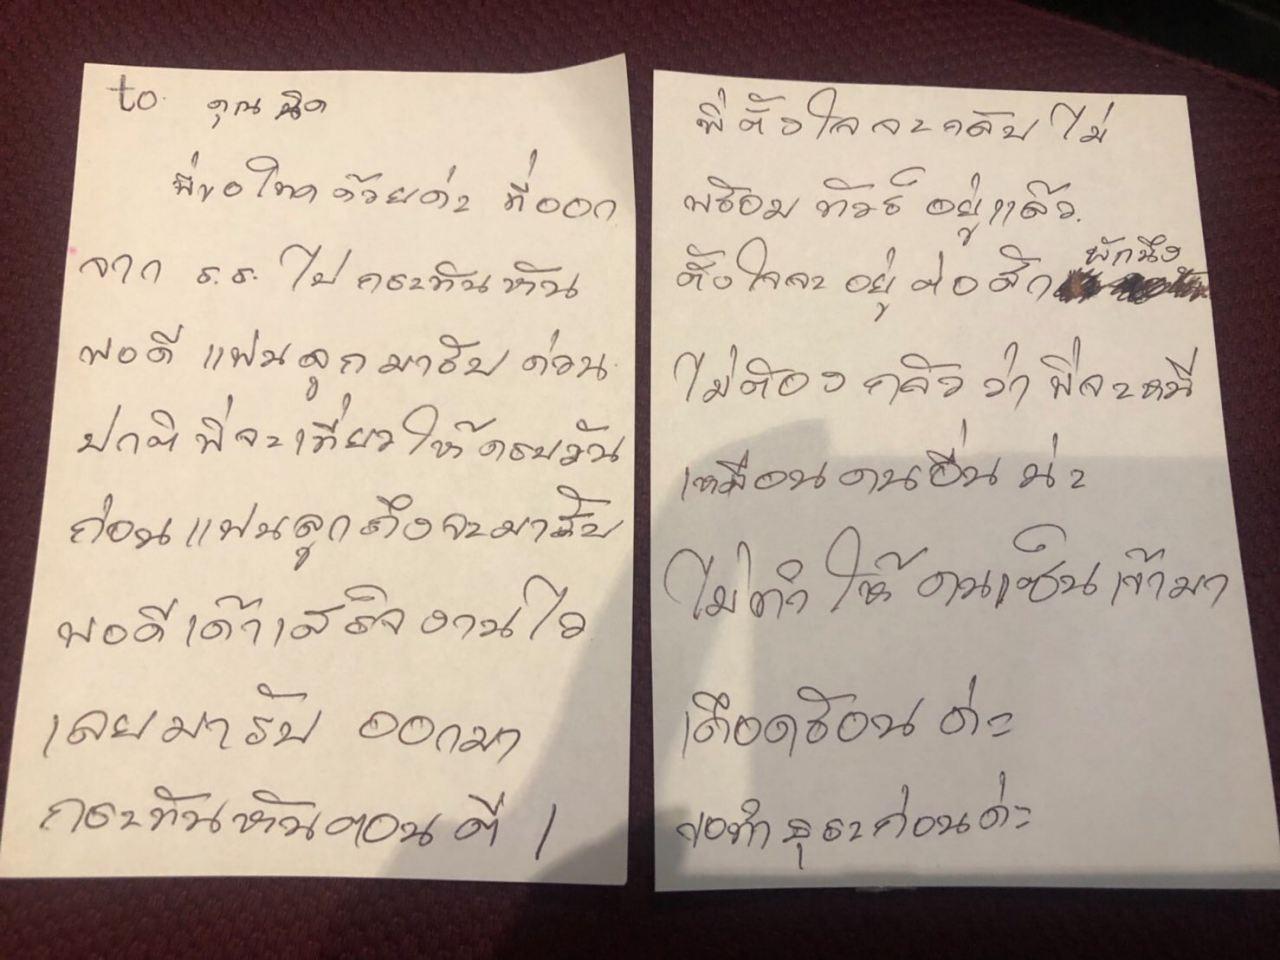 to. คุณ นิด
พี่ขอโทษด้วยค่ะ ที่ออก
จาก ร.ร. ไป กระทันหัน
พอดี แฟนลูกมารับ ด่วน
ปกติ พี่จะเที่ยวให้ครบวัน
ก่อน แฟนลูกถึงจะมารับ
พอดีเค้าเสร็จ งานไว
เลยมารับ ออกมา
กระทันหันตอน ตี 1
พี่ ตั้งใจ จะกลับ ไม่
พร้อม ทัวร์ อยู่แล้ว.
ตั้งใจจะ อยู่ ต่อ สัก พักนึง
ไม่ต้อง กลัว ว่า พี่จะหนี
เหมือนคนอื่น น่ะ
ไม่ทำ ให้ คนเซ็น เข้ามา
เดือดร้อน ค่ะ
ขอทำ ธุระก่อนค่ะ